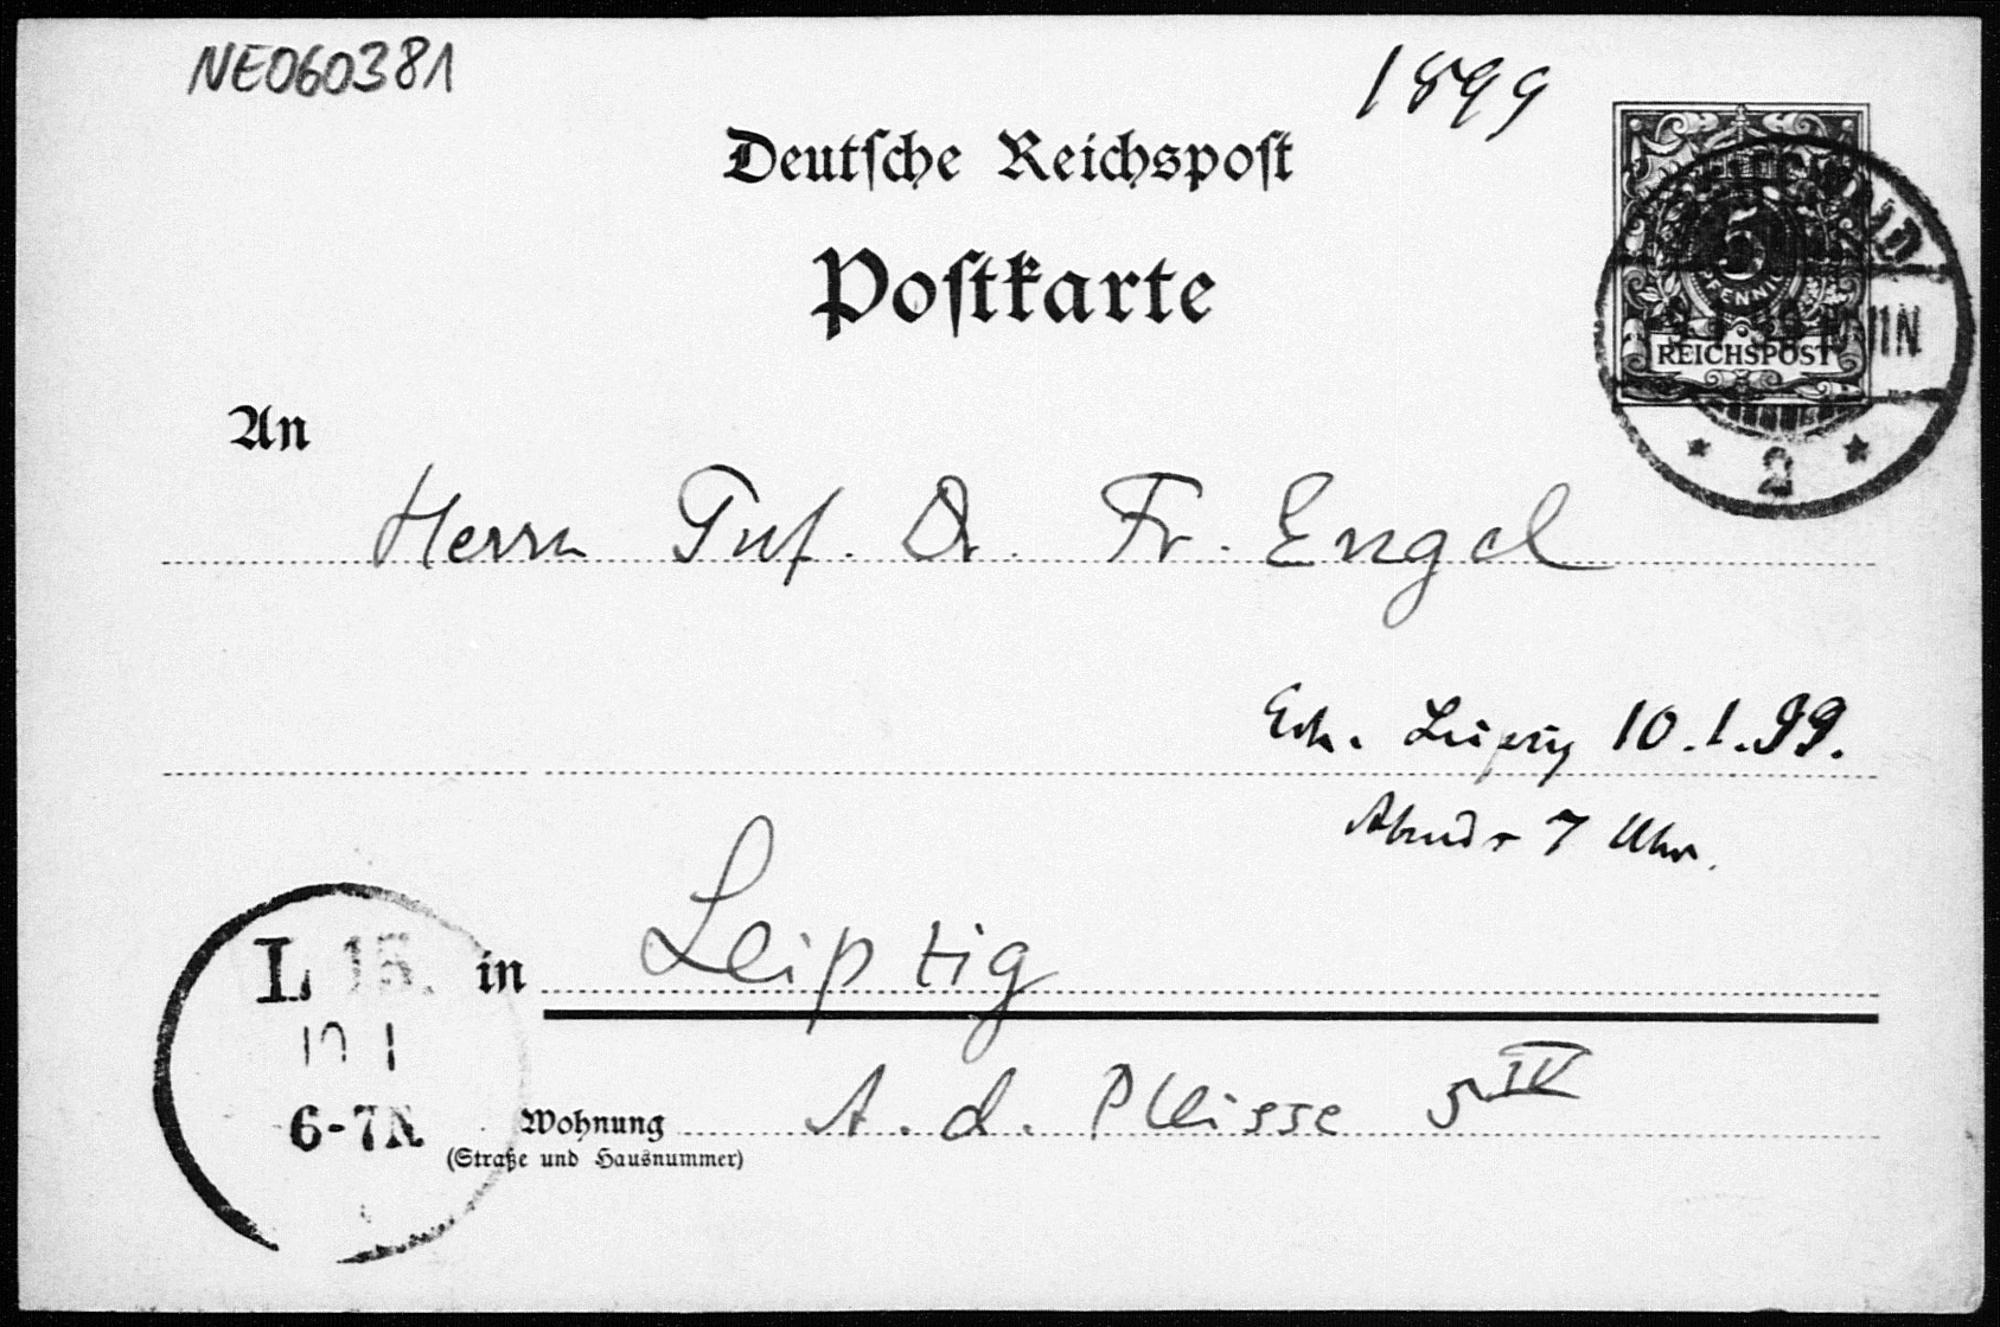 NE060381
1899
Deutſche Reichspoſt
Poſtkarte
5
PFENNIG
REICHSPOST
11N
2
An
Herrn Prof. Dr. Fr. Engel
Erh. Leipzig 10.1.99.
Abends 7 Uhr.
L 15.
10 1
6-7N
in Leipzig
Wohnung A. d. Pleisse 5 IV
(Straße und Hausnummer)